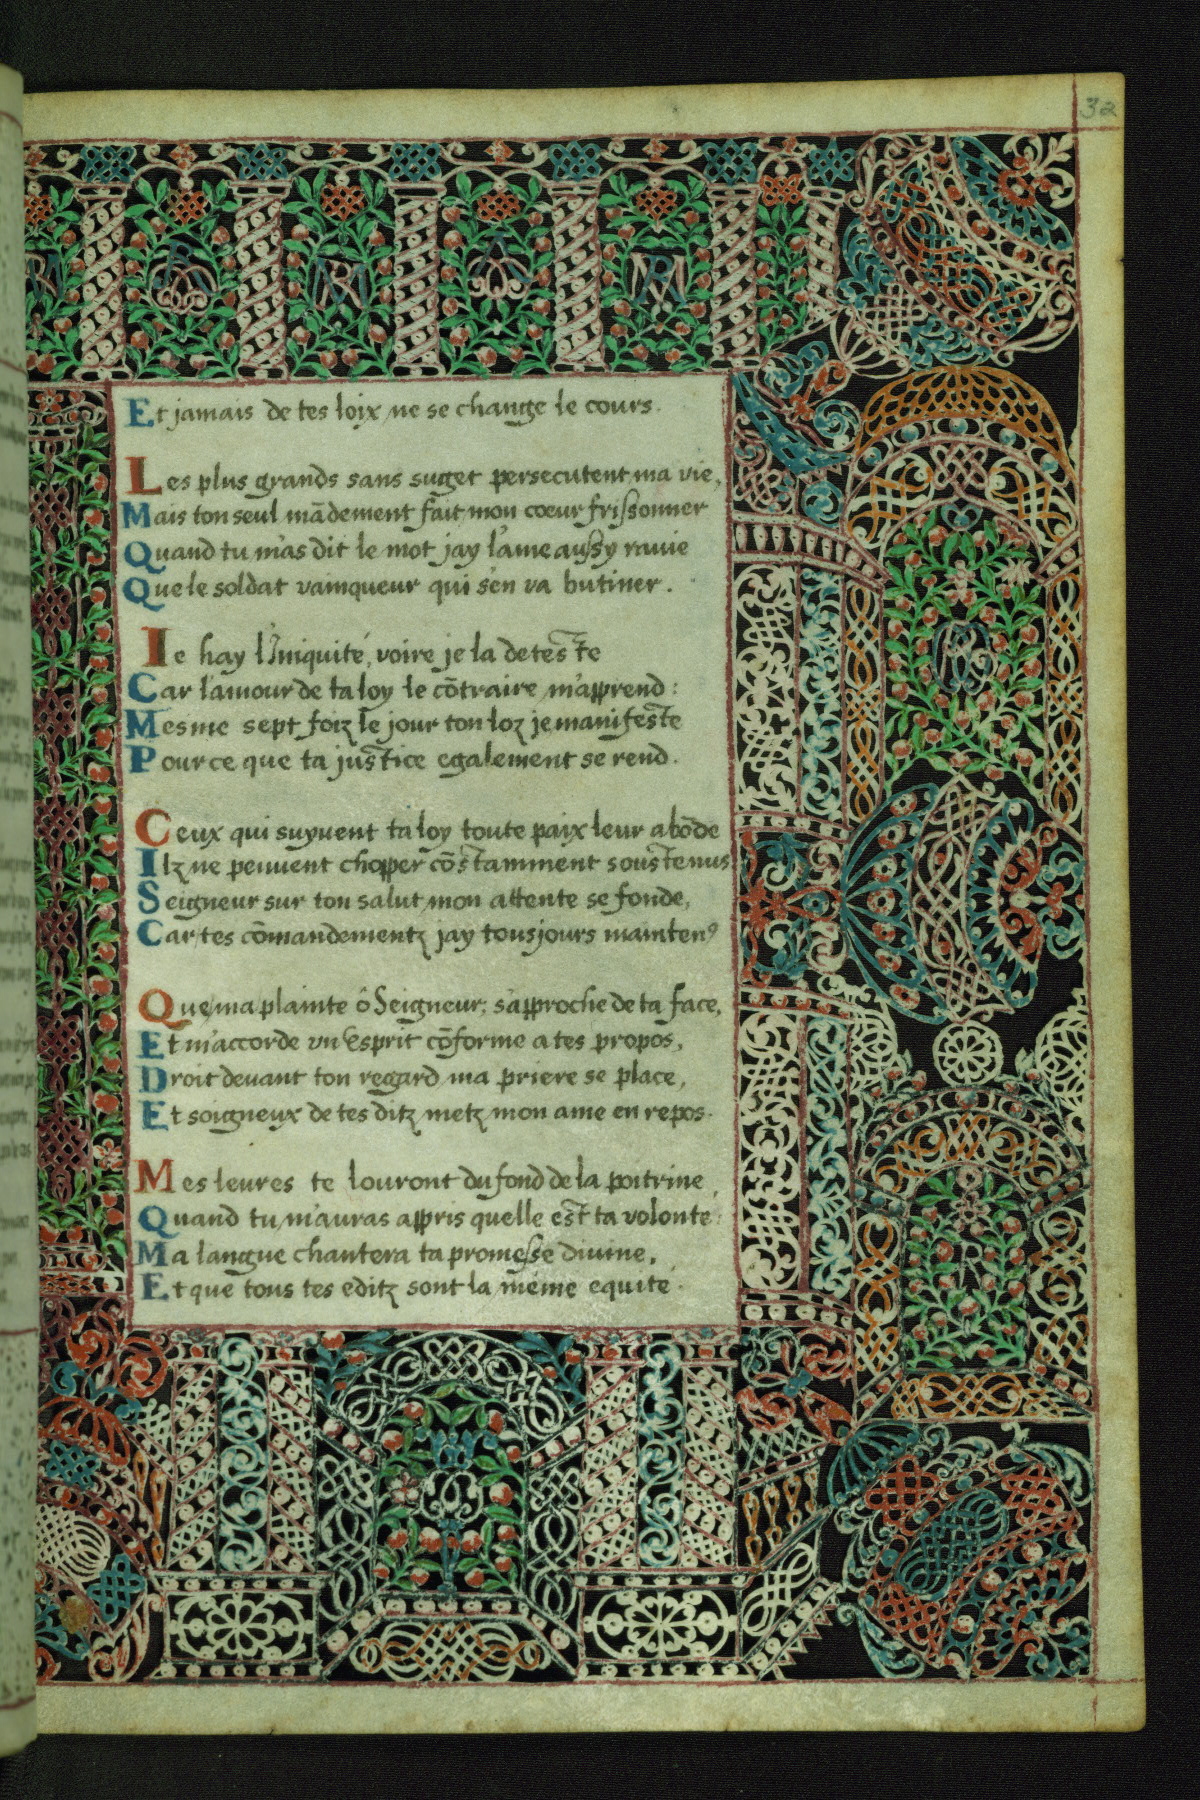 32
Et jamais de tes loix ne se change le cours.
Les plus grands sans suget persecutent ma vie,
Mais ton seul mãdement fait mon cœur frissonner
Quand tu m'as dit le mot jay l'ame aussy ravie
Que le soldat vainqueur qui s'en va butiner.
Ie hay l'Iniquité, voire je la deteste
Car l'amour de ta loy le cõtraire m'apprend:
Mesme sept foiz le jour ton loz je manifeste
Pource que ta justice egalement se rend.
Ceux qui suyvent ta loy toute paix leur abõde
Ilz ne peuvent chopper cõstamment soustenus
Seigneur sur ton salut mon attente se fonde,
Car tes cõmandementz jay tousjours maintenꝰ
Que ma plainte ô Seigneur, s'approche de ta face,
Et m'accorde vn Esprit cõforme a tes propos,
Droit devant ton regard ma priere se place,
Et soigneux de tes ditz metz mon ame en repos.
Mes levres te louront du fond de la poitrine,
Quand tu m'auras appris quelle est ta volonte:
Ma langue chantera ta promesse divine,
Et que tous tes editz sont la méme equité.